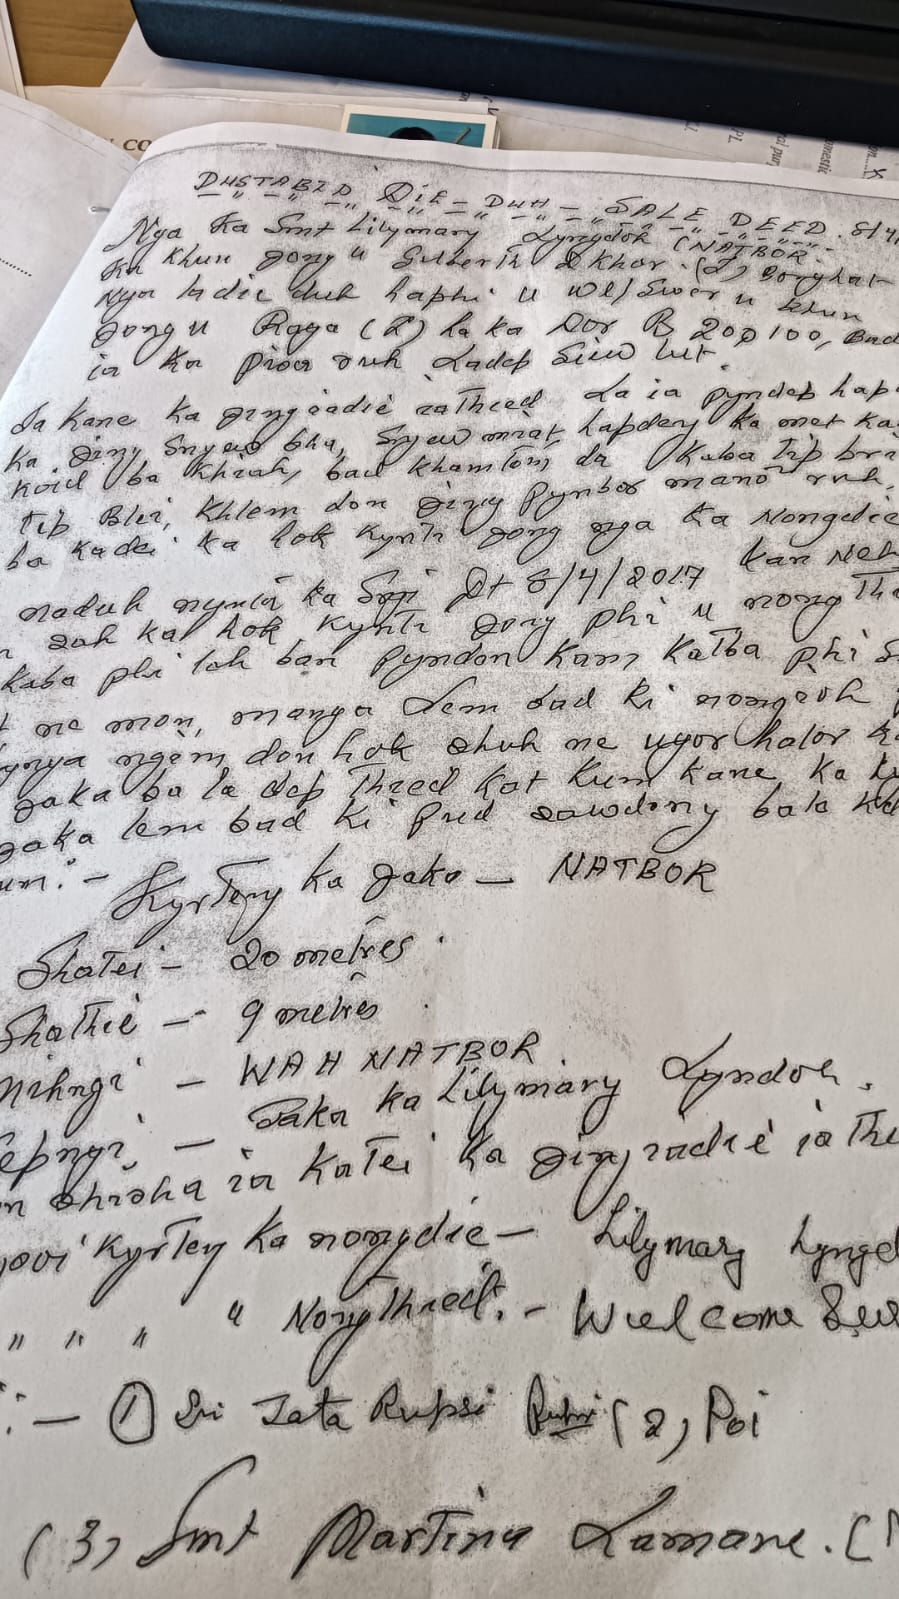 DUSTABID DIE - DUH - SALE DEED. 8/4/
Nga Ka Smt Lilymary Lyngdoh (NATBOR.
Ka Khun Jong u Gilberth D Khar. (L) Borghat
Nga la die duh haphi u Wel Swer u khun
Jong u Raga (L) ha ka Dor R 200100, Bad
ia ka pisa ruh Ladep Siew lut.
Da kane ka Jingiadie iathied La ia pyndep hap
Ka Jing Sngew bha, Sngew miat hapdeng ka met ka
Koid ba Khiah, bad khamtam da Kaba tip bri
tip Blei, Khlem don Jing Pynbor mano ruh,
ba Kadei ka hok Kynti Jong nga Ka Nongdie
naduh mynta ka Sngi Dt 8/4/2017 Kan Neh
Jah ka hok Kynti Jong phi u nongTh
kaba phi lah ban Pyndon Kam Katba phi S
ne mon, manga Lem bad ki nongïoh
ngem don hok shuh ne uger halor Ka
Jaka ba la dep Thied Kat Kum Kane, Ka k
Jaka lem bad Ki Pud Sawdong bala
um:-
Kyrteng ka Jaka - NATBOR
Shatei - 20 metres.
Shathie - 9 metres.
Mihngi - WAH NATBOR.
Sepngi - Jaka ka Lilymary Lyndoh.
shisha ia Katei Ka Jingiadie ia Thi
Kyrteng Ka nongdie - Lilymary Lyngd
" " " " Nongthied. - Welcome Swe
:- (1) Sri Tata Rupsi (2) Poi
(3) Smt Martina Lamare. (